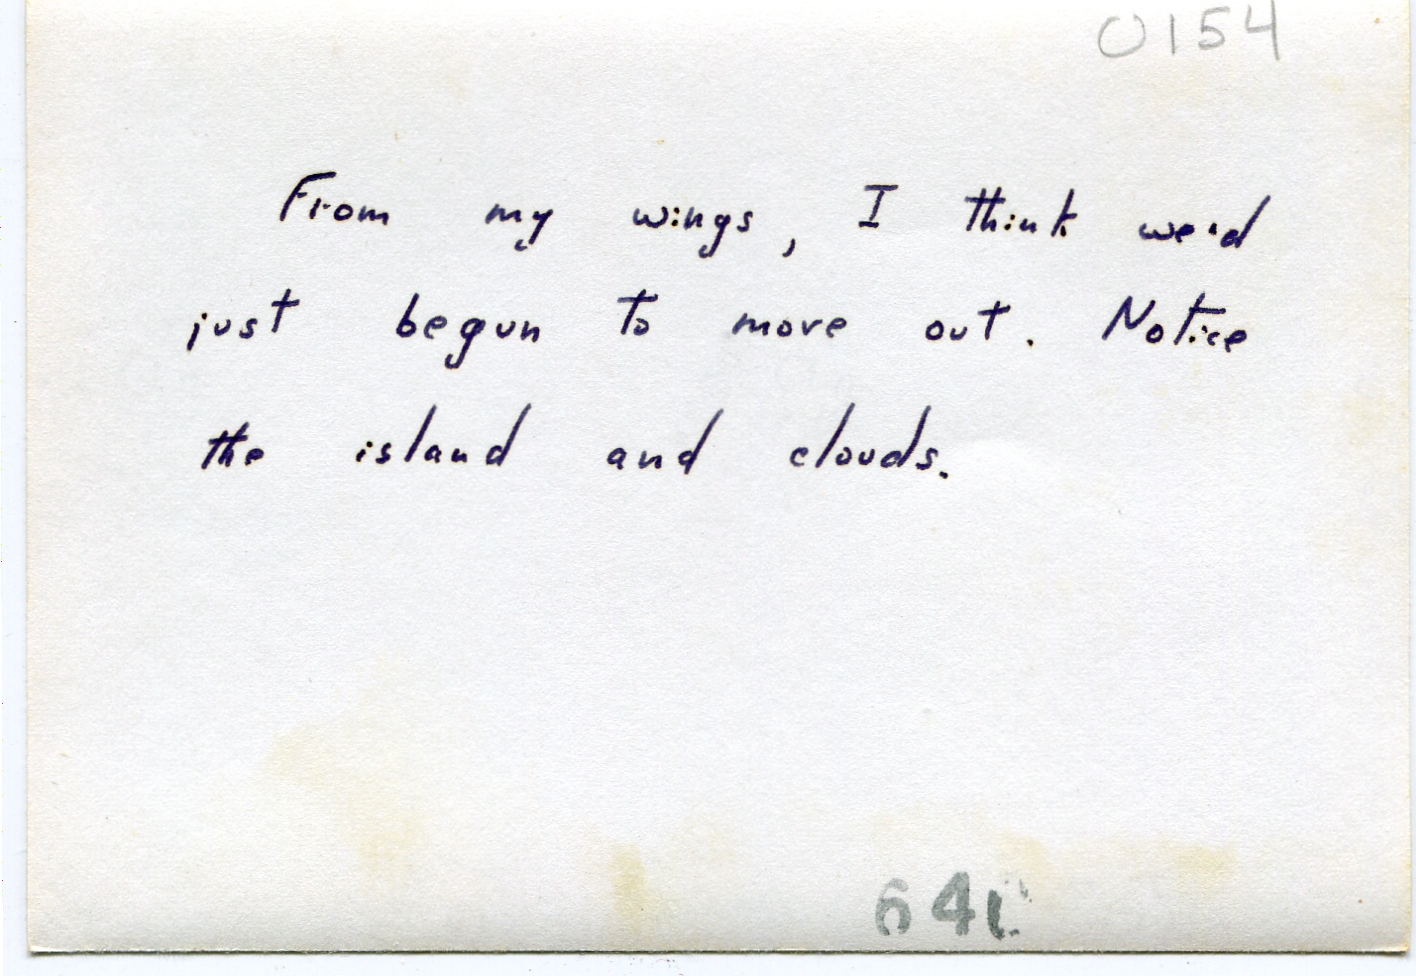 0154
From my wings, I think we'd
just begun to move out. Notice
the island and clouds.
64